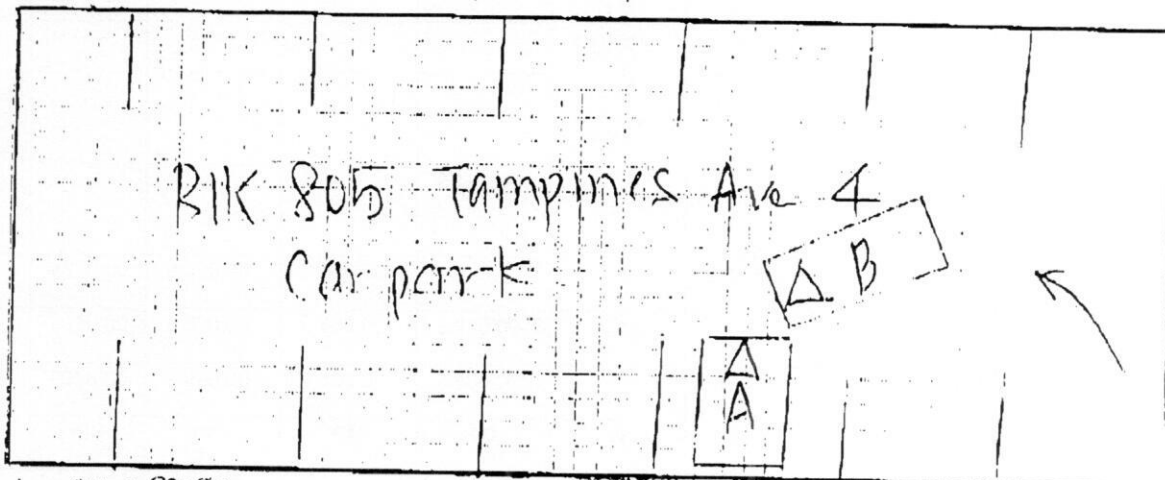 Blk 805 Tampines Ave 4
Car park
B
A